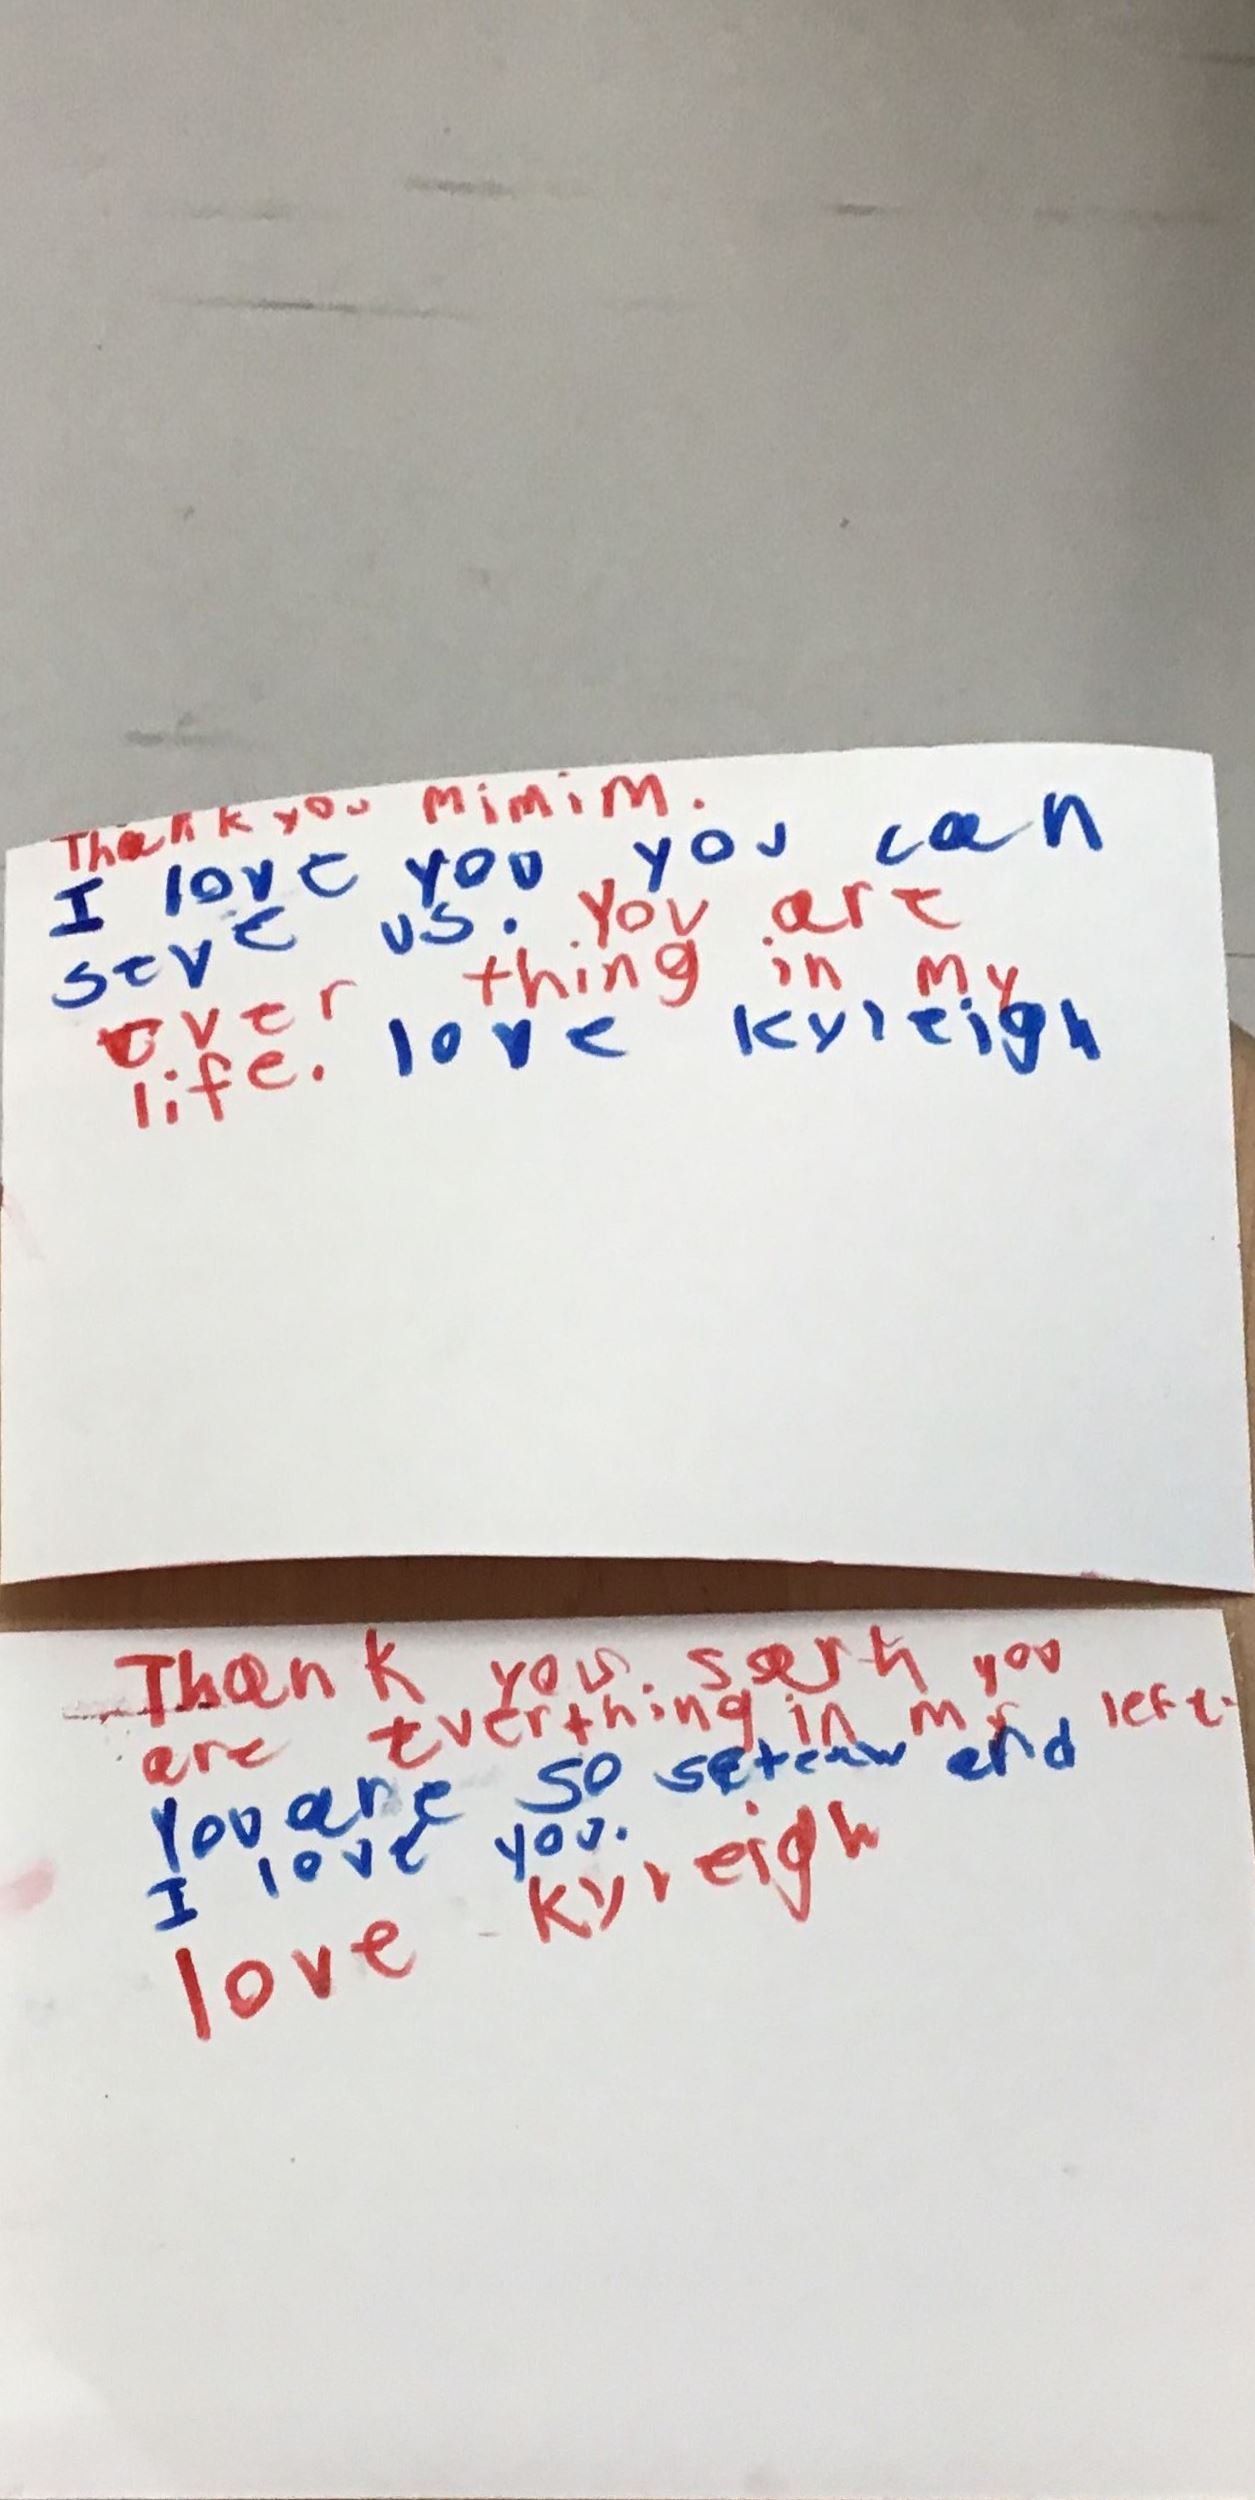 Thank you Mimim.
I love you you can
seve us. You are
ever thing in my
life. love Kyleigh
Thank you sarh you
are everthing in my left.
You are so and
I love you.
love Kyleigh